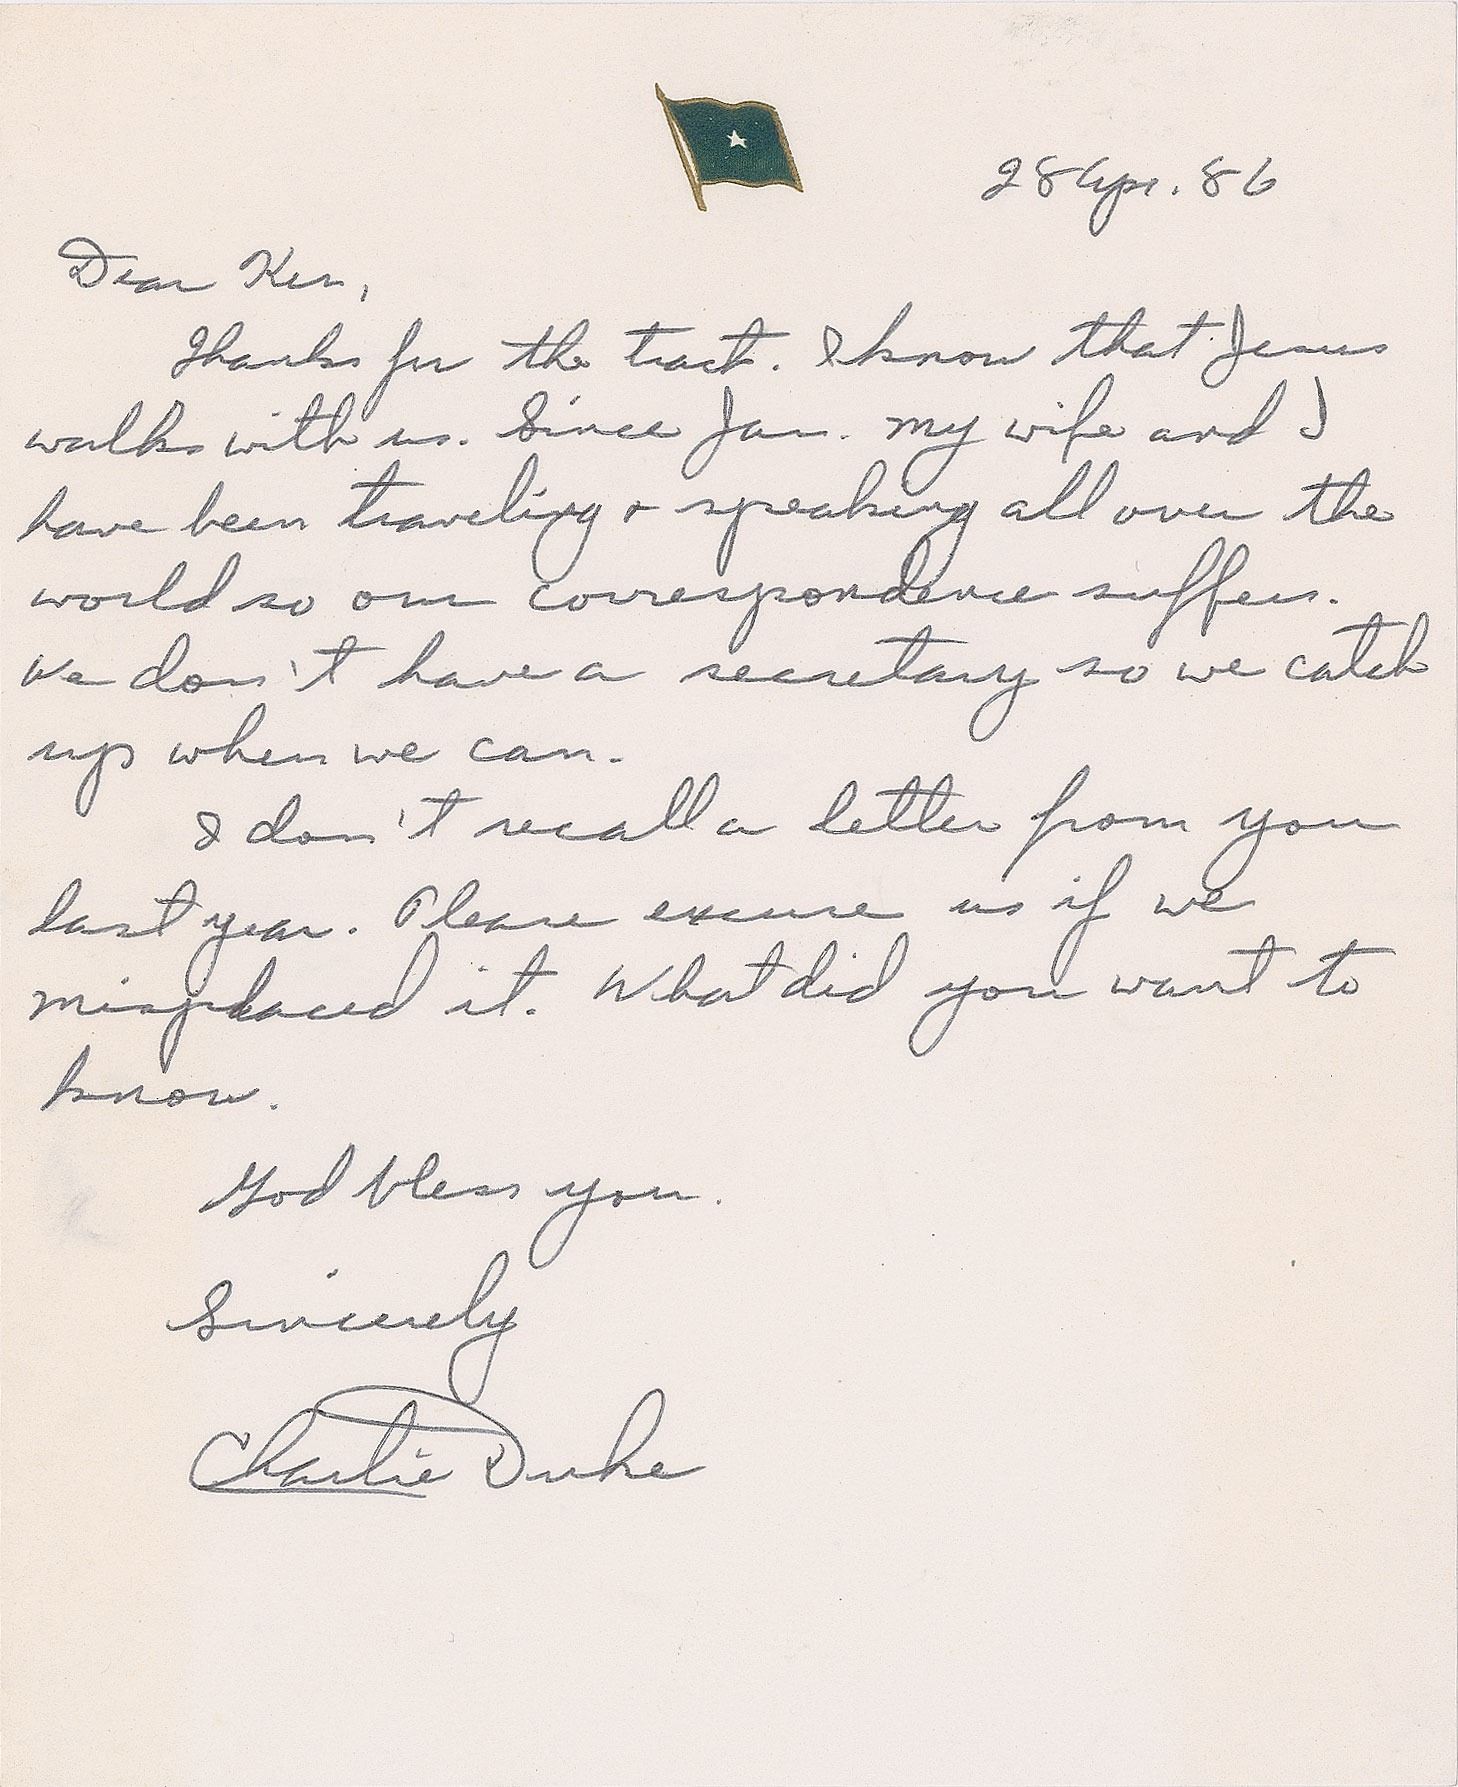 28 Apr. 86
Dear Ken,
Thanks for the tract. I know that Jesus
walks with us. Since Jan. my wife and I
have been traveling & speaking all over the
world so our correspondence suffers.
We don't have a secretary so we catch
up when we can.
I don't recall a letter from you
last year. Please excuse us if we
misplaced it. What did you want to
know.
God bless you.
Sincerely
Charlie Duke